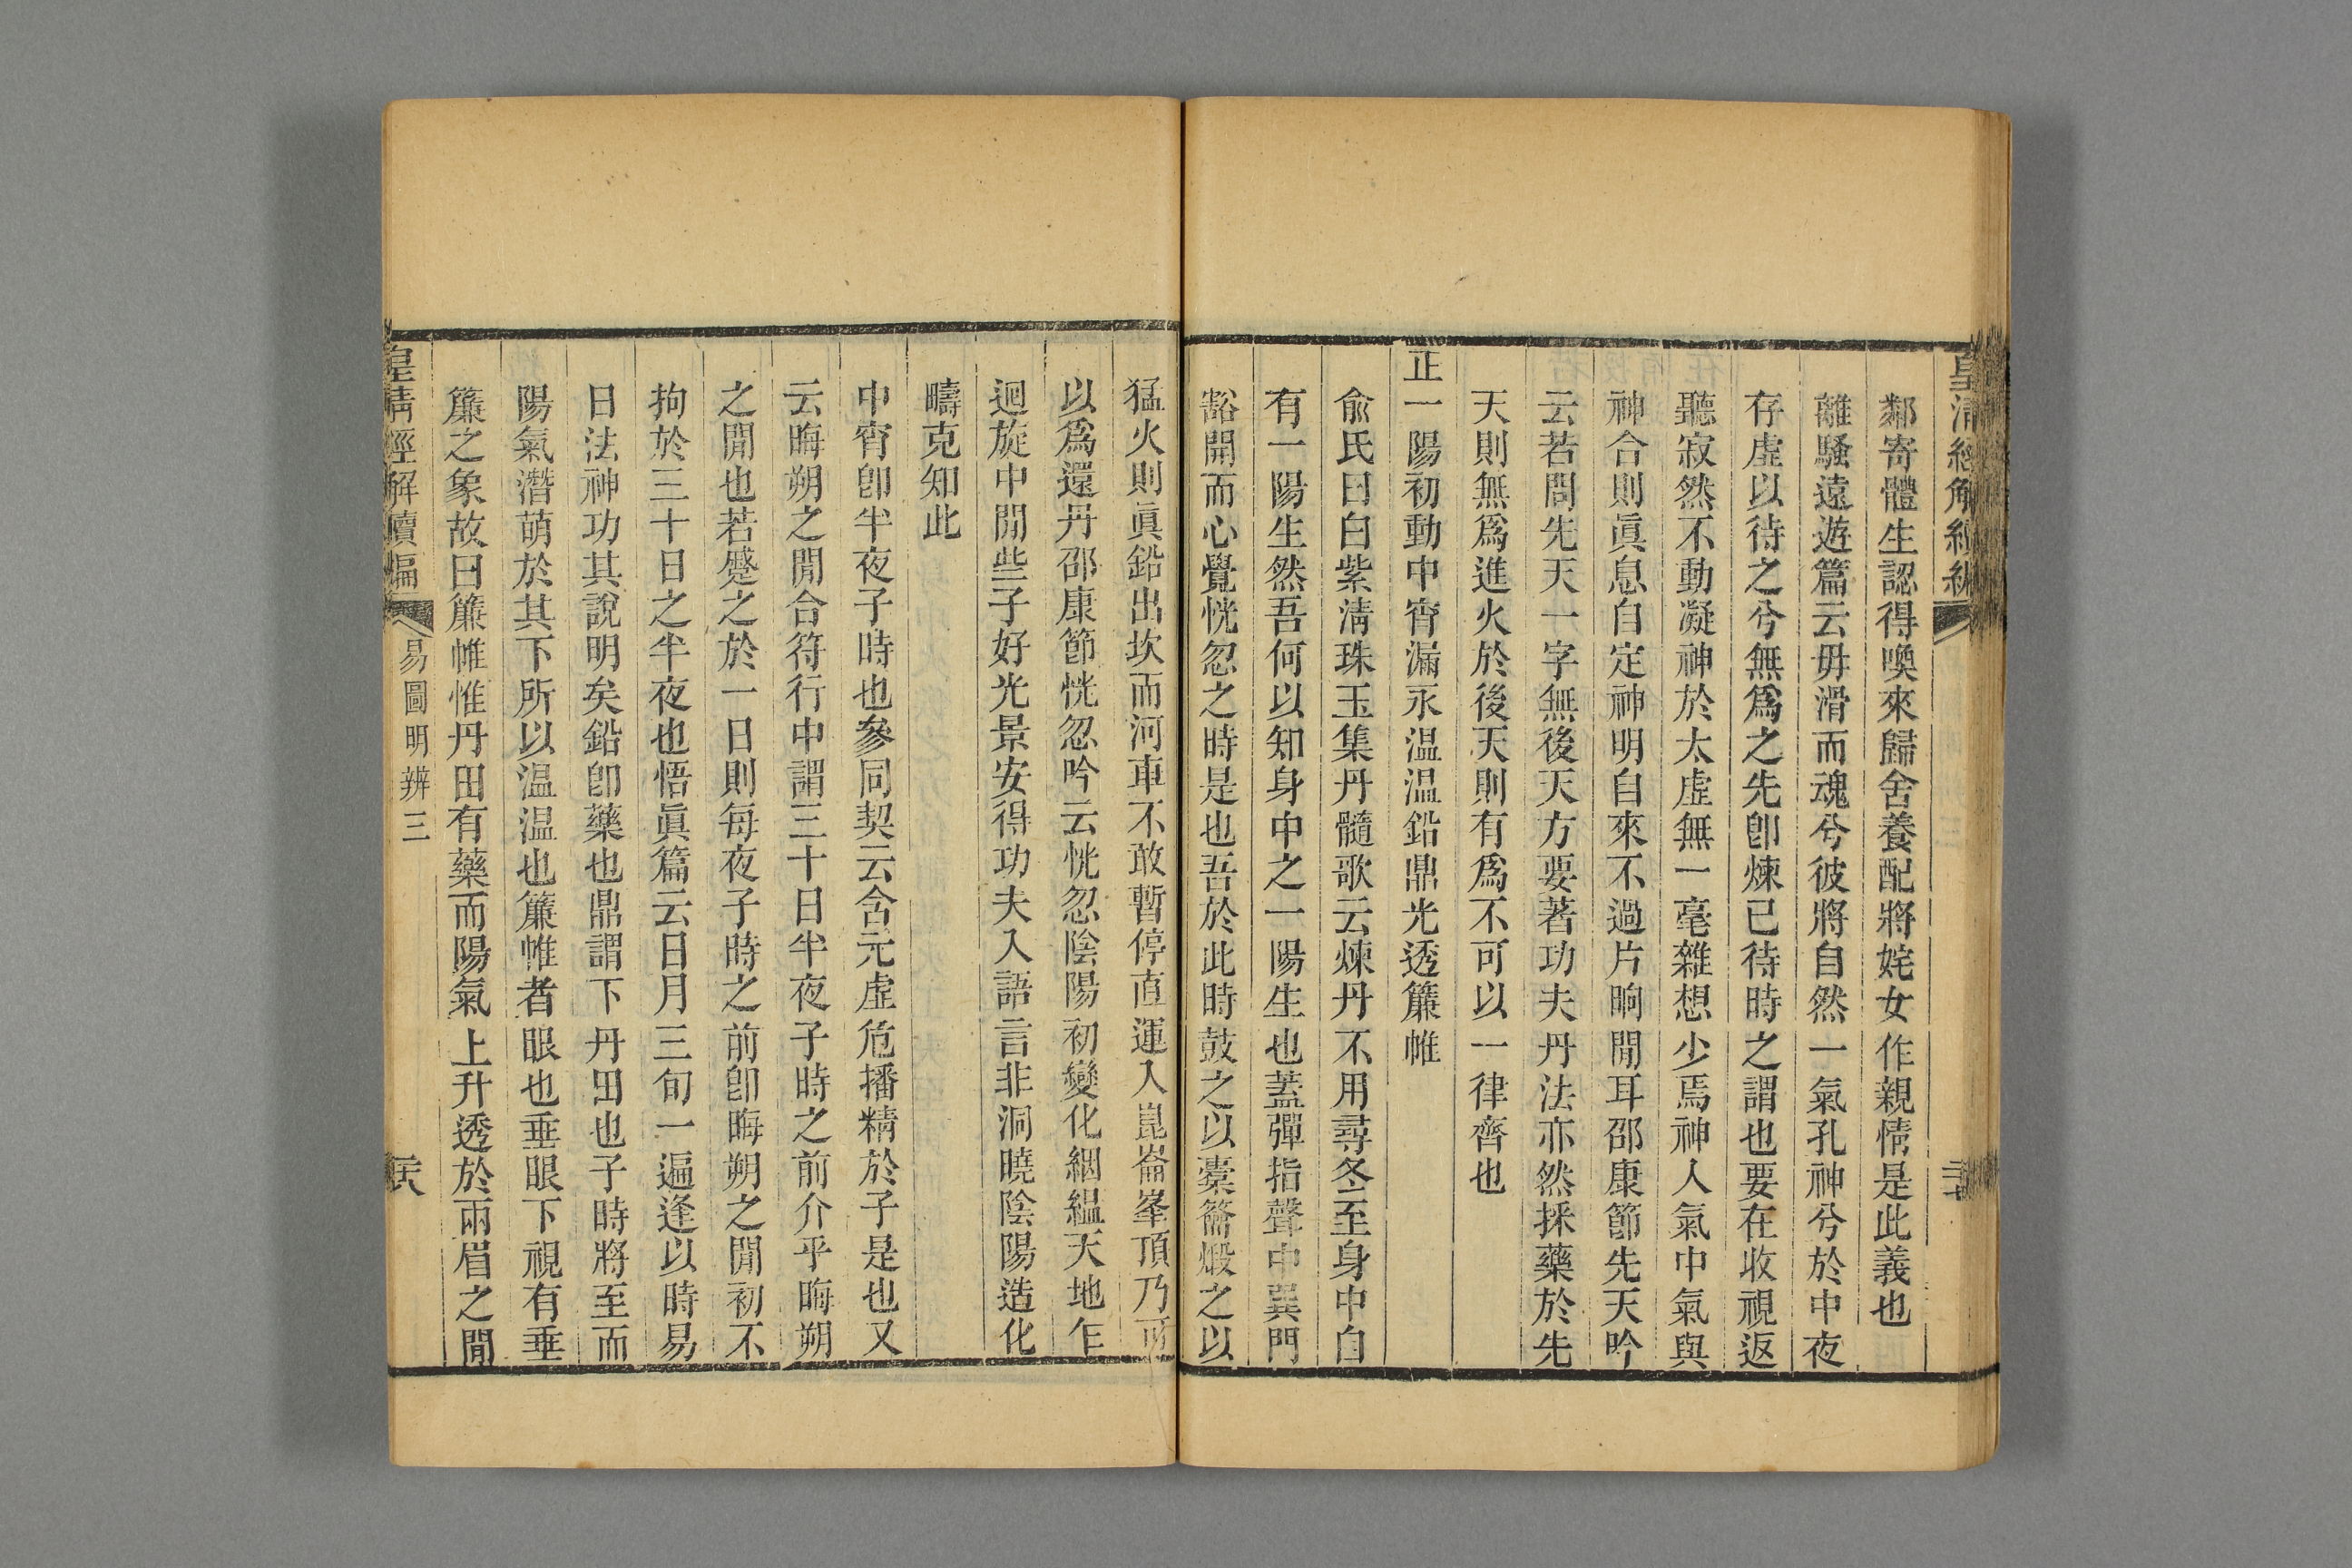 皇清經解續編
鄰寄體生認得喚來歸舍養配將姹女作親情是此義也
離騷遠遊篇云毋滑而魂兮彼將自然一氣孔神兮於中夜
存虛以待之兮無爲之先卽煉已待時之謂也要在收視返
聽寂然不動凝神於太虛無一毫雜想少焉神入氣中氣與
神合則眞息自定神明自來不過片晌閒耳邵康節先天吟
云若問先天一字無後天方要著功夫丹法亦然採藥於先
天則無爲進火於後天則有爲不可以一律齊也
正一陽初動中宵漏永温温鉛鼎光透簾帷
俞氏曰白紫淸珠玉集丹髓歌云煉丹不用尋冬至身中自
有一陽生然吾何以知身中之一陽生也蓋彈指聲中巽門
豁開而心覺恍忽之時是也吾於此時鼓之以橐籥煅之以
猛火則眞鉛出坎而河車不敢暫停直運入崑崙峯頂乃可
以爲還丹邵康節恍忽吟云恍忽陰陽初變化絪緼天地乍
迴旋中閒些子好光景安得功夫入語言非洞曉陰陽造化
疇克知此
中宵卽半夜子時也參同契云含元虛危播精於子是也又
云晦朔之閒合符行中謂三十日半夜子時之前介乎晦朔
之閒也若蹙之於一日則每夜子時之前卽晦朔之閒初不
拘於三十日之半夜也悟眞篇云日月三旬一遍逢以時易
日法神功其說明矣鉛卽藥也鼎謂下丹田也子時將至而
陽氣潛萌於其下所以温温也簾帷者眼也垂眼下視有垂
簾之象故曰簾帷惟丹田有藥而陽氣上升透於兩眉之閒
皇清經解續編 易圖明辨三 六